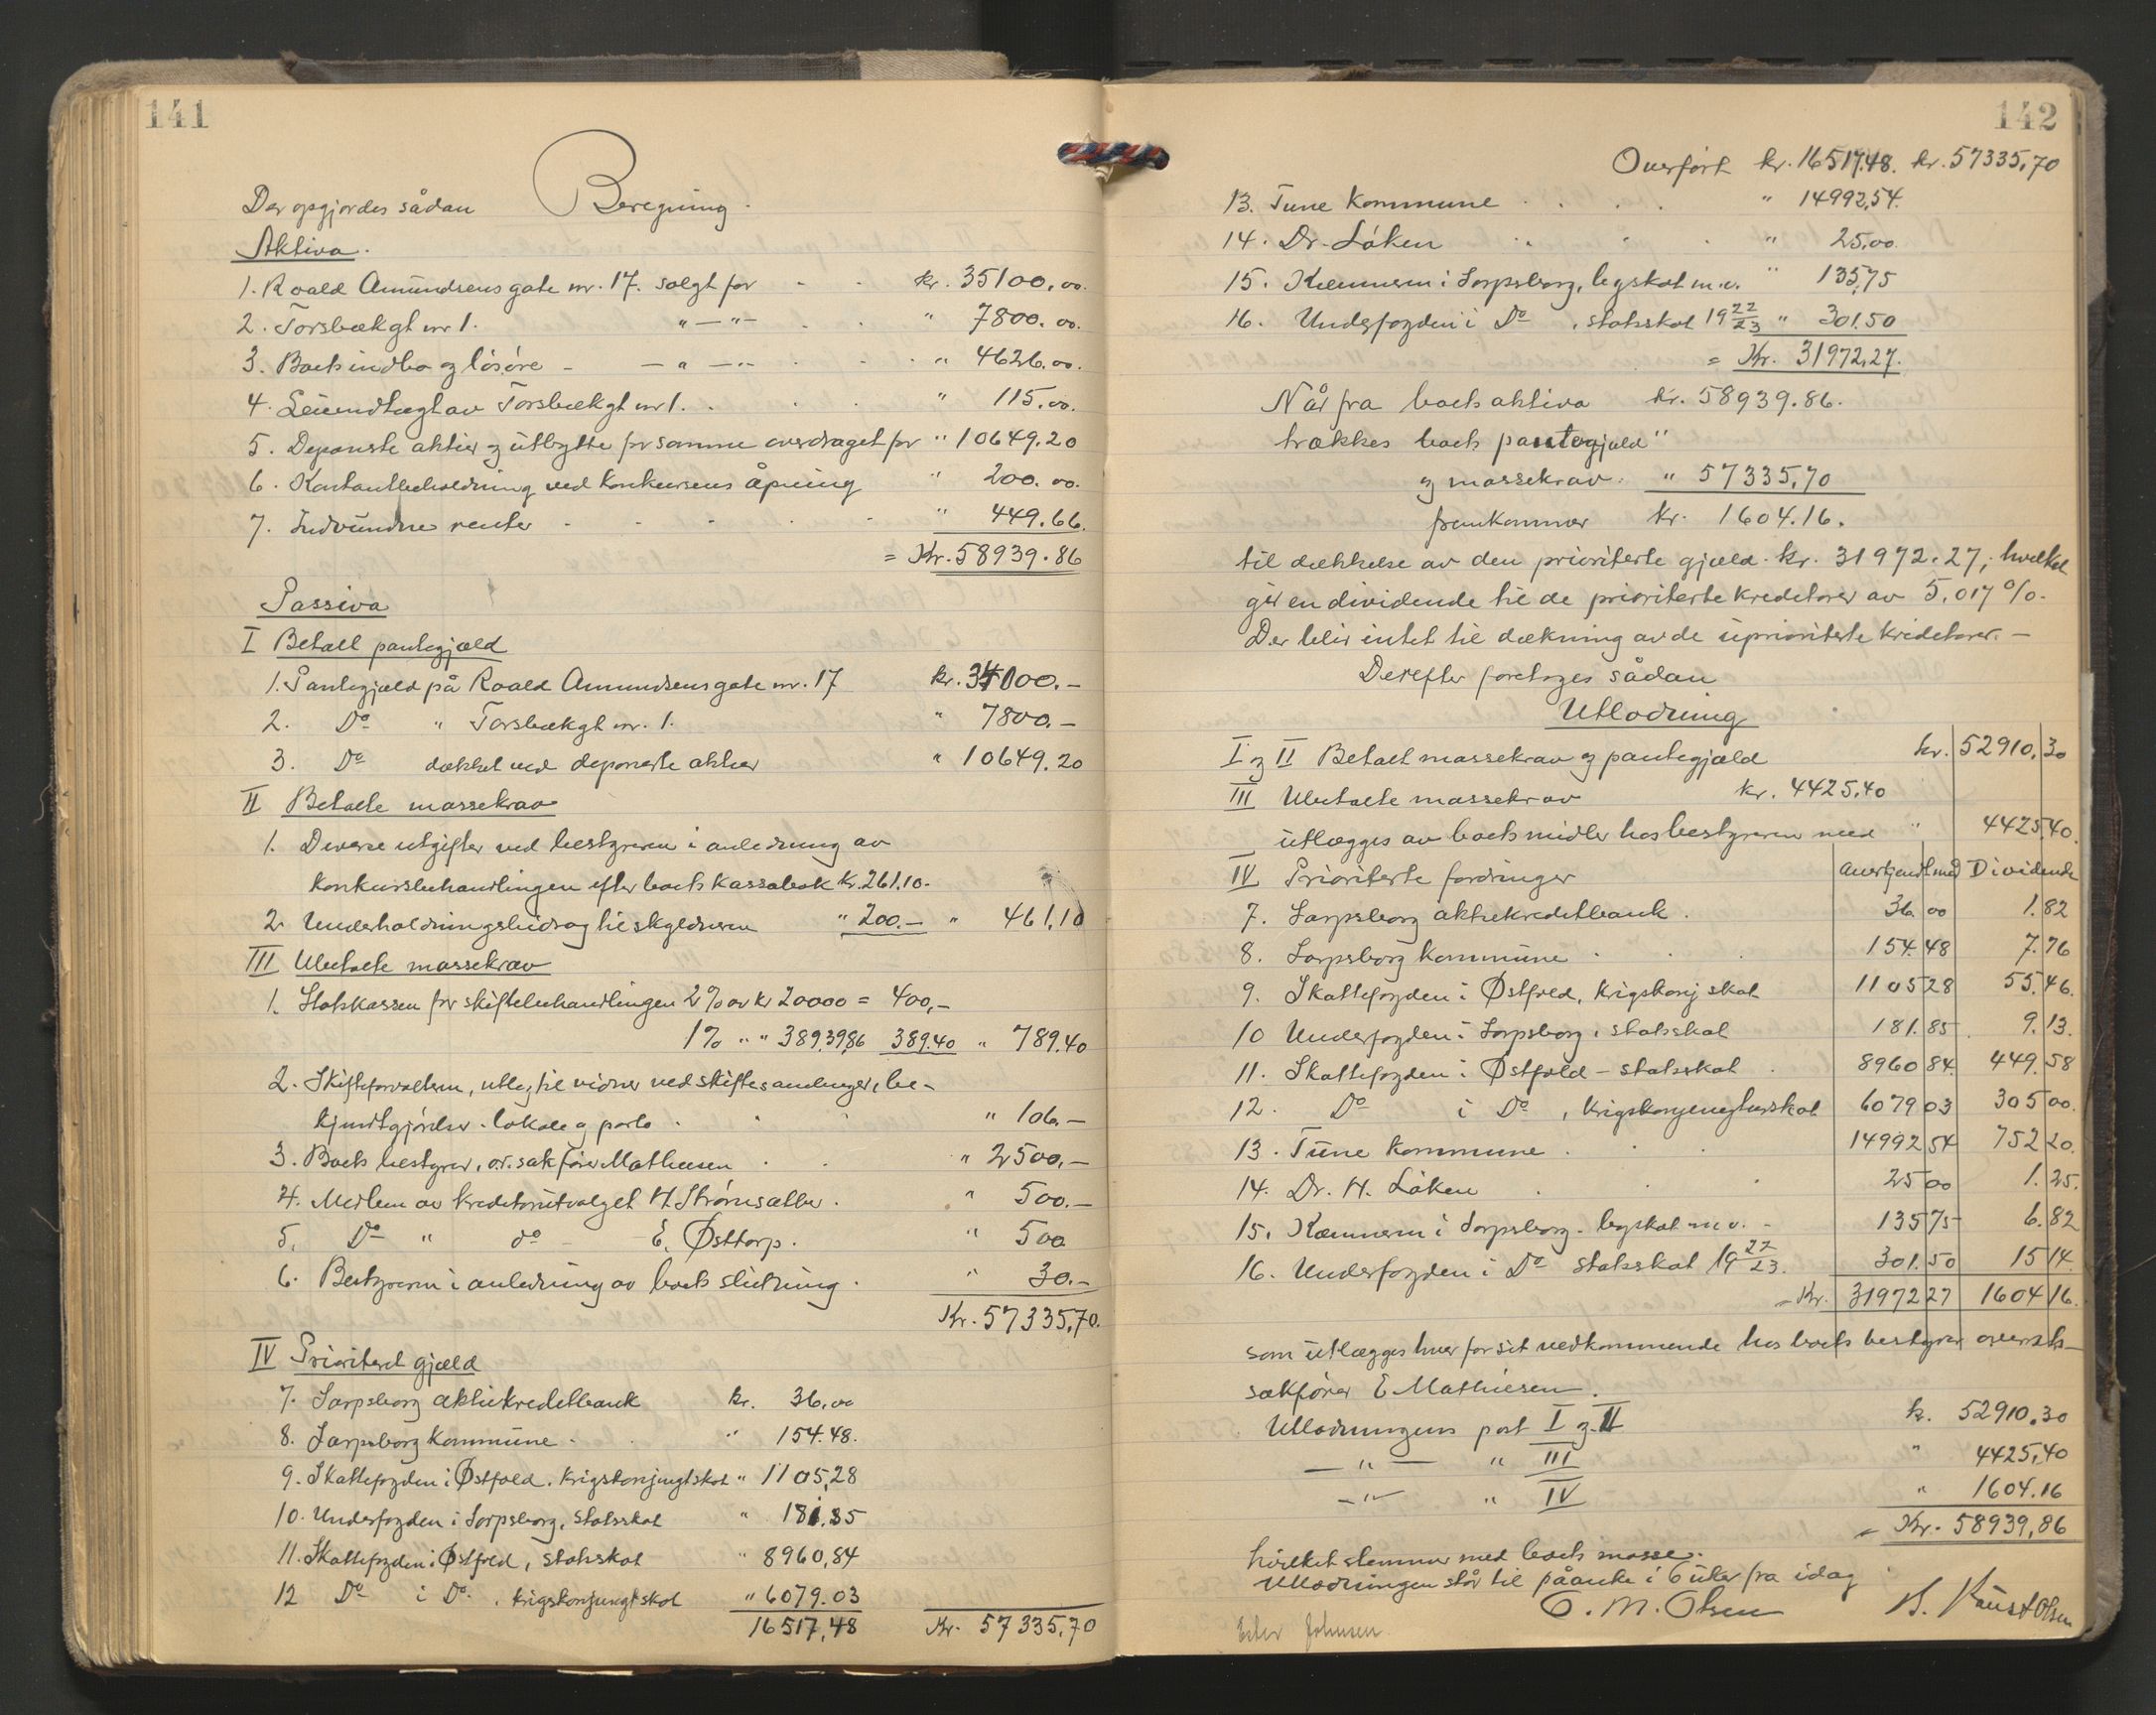 141
Der opgjordes sådan Beregning.
Aktiva.
1. Roald Amundsens gate nr. 17. solgt for kr. 35100,00.
2. Torsbækgt nr 1. " — " — " 7800.00.
3. Boets indbo og løsøre — " — " — " 4626.00.
4. Leieindtægt av Torsbækgt nr 1. " 115,00.
5. Deponerte aktier og utbytte for samme overdraget for " 10649.20
6. Kontantbeholdning ved konkursens åpning " 200.00.
7. Indvundne renter " 449.66.
= Kr. 58939.86
Passiva
I Betalt pantegjæld
1. Pantegjæld på Roald Amundsens gate nr. 17 kr. 34000.—
2. Do " Torsbækgt nr. 1. " 7800.—
3. Do dækket ved deponerte aktier " 10649.20
II Betalte massekrav
1. Diverse utgifter ved bestyreren i anledning av
konkursbehandlingen efter boets kassabok kr. 261.10.
2. Underholdningsbidrag til skyldneren " 200.— " 461,10
III Ubetalte massekrav
1. Statskassen for skiftebehandlingen 2% av kr 20000 = 400,—
1% " " 38939,86 389.40 " 789.40
2. Skifteforvalteren, utlæg til vidner ved skiftesamlinger, be-
kjendtgjørelser. lokale og porto. " 106.—
3. Boets bestyrer, o.r. sakfører Mathiesen " 2500,—
4. Medlem av kreditorutvalget H. Strømsæther. " 500.—
5. Do " do E. Østtorp. " 500
6. Bestyreren i anledning av boets slutning. " 30.—
Kr. 57335,70.
IV Prioritert gjæld
7. Sarpsborg aktiekreditbank kr. 36,00
8. Sarpsborg kommune. " 154.48.
9. Skattefogden i Østfold. krigskonjungtskat " 1105,28
10. Underfogden i Sarpsborg, statsskat " 181.85
11. Skattefogden i Østfold, statsskat " 8960,84
12 Do i Do. , krigskonjungtskat " 6079.03
16517,48 Kr. 57335,70
142
Overført kr. 16517.48. kr. 57335,70
13. Tune kommune " 14992,54.
14. Dr. Løken " 25,00.
15. Kæmneren i Sarpsborg, byskat m.v. " 135,75
16. Underfogden i Do , statsskat 19 22/23 " 301.50
= Kr. 31972,27.
Når fra boets aktiva kr. 58939.86.
trækkes boets pantegjæld "
og massekrav. " 57335,70
fremkommer kr. 1604.16.
til dækkelse av den prioriterte gjæld. kr. 31972.27, hvilket
gir en dividende til de prioriterte kreditorer av 5,017%.
Der blir intet til dækning av de uprioriterte kreditorer. —
Derefter foretoges sådan
Utlodning
I og II Betalt massekrav og pantegjæld kr. 52910.30
III Ubetalte massekrav kr. 4425,40
utlægges av boets midler hos bestyreren med " 4425 40.
IV Prioriterte fordringer Anerkjendt med Dividende
7. Sarpsborg aktiekreditbank. 36.00 1.82
8. Sarpsborg kommune 154.48 7.76
9. Skattefogden i Østfold, krigskonj skat 1105 28 55.46.
10 Underfogden i Sarpsborg, statsskat 181.85 9.13.
11. Skattefogden i Østfold – statsskat 8960 84. 449.58
12. Do i Do , krigskonjungturskat 6079 03 305 00.
13. Tune kommune 14992 54 752 20.
14. Dr. H. Løken 25 00 1.25.
15. Kæmneren i Sarpsborg. byskat m.v. – 135 75 6.82
16. Underfogden i Do statsskat 19 22/23. 301.50 15 14.
= Kr. 31972 27 1604 16.
som utlægges hver for sit vedkommende hos boets bestyrer overrets-
sakfører E Mathiesen.
Utlodningens post I og II kr. 52910.30
— " — " III " 4425,40
— " — " IV " 1604.16
= Kr. 58939,86
hvilket stemmer med boets masse.
Utlodningen står til påanke i 6 uker fra idag
O. M. Olsen K. Paust Olsen
Ester Johnsen.